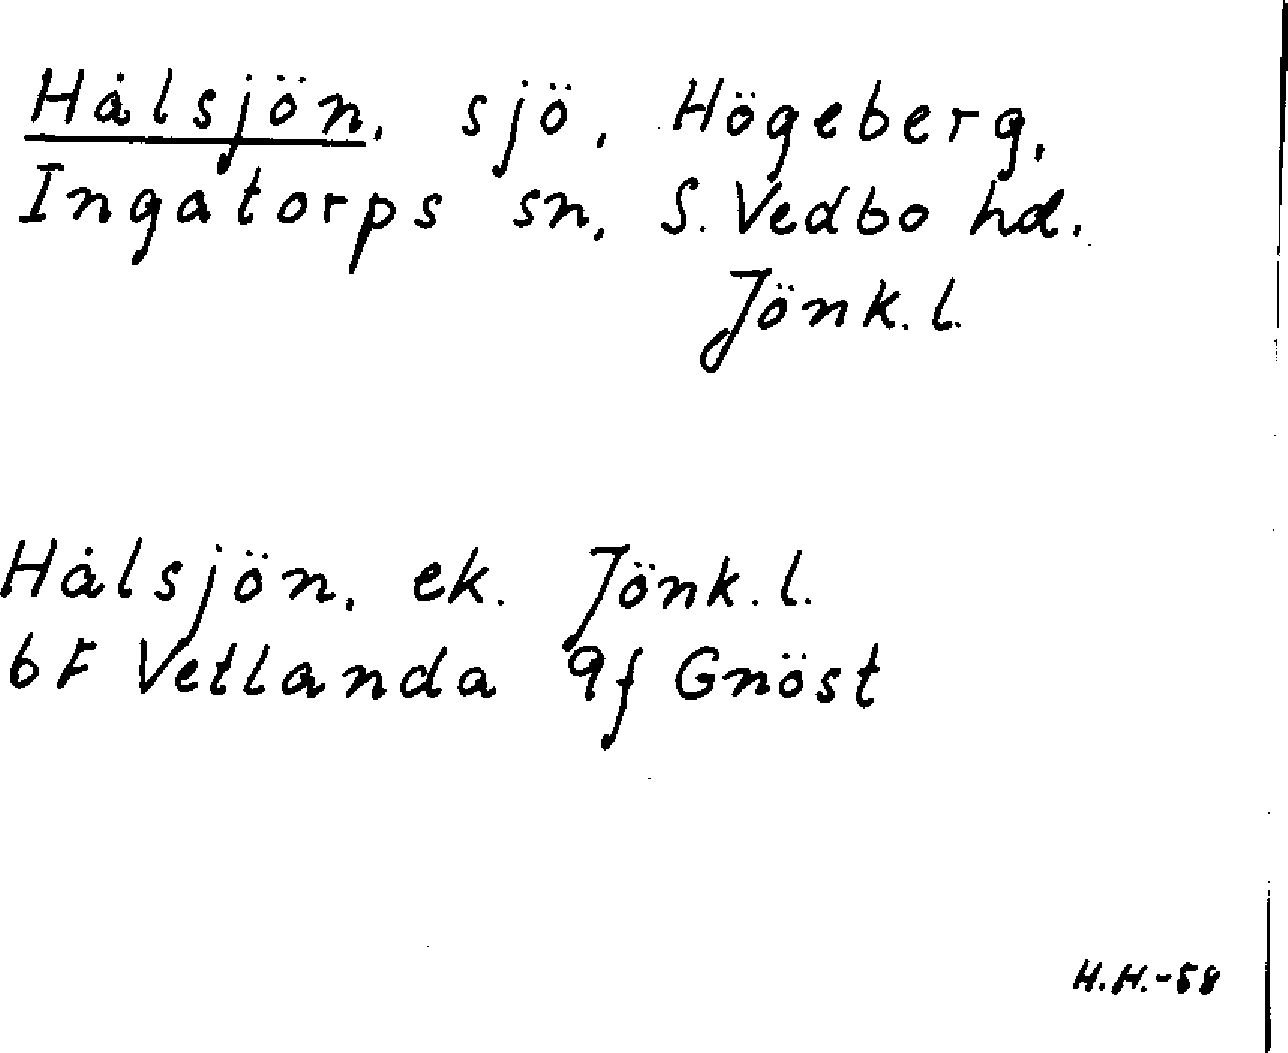 Hålsjön, sjö, Högeberg,
Ingatorps sn, S. Vedbo hd.
Jönk. l.
Hålsjön, ek. Jönk. l.
6F Vetlanda 9f Gnöst
H.H.-58